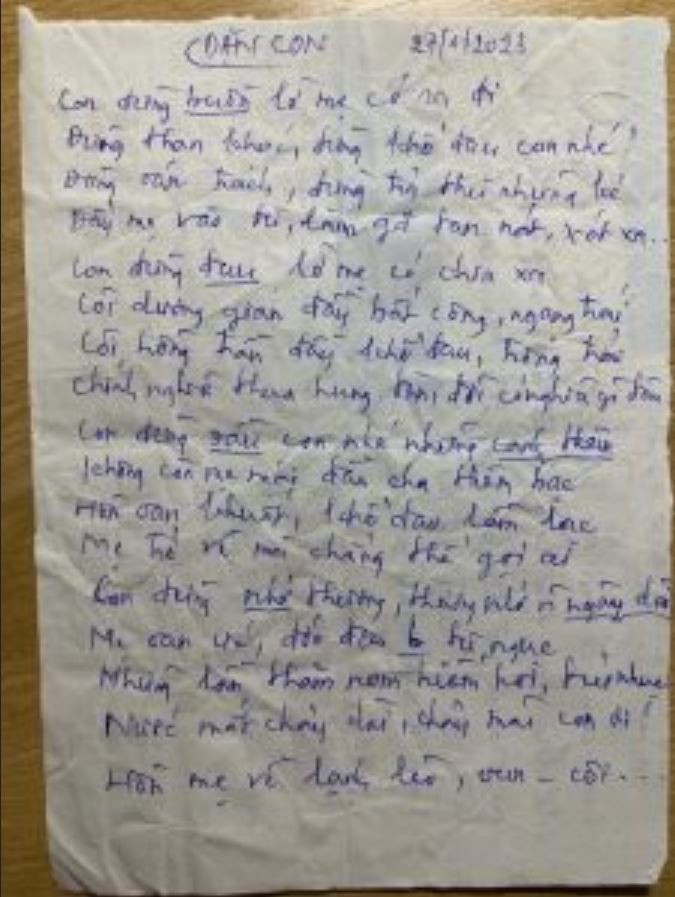 DẶN CON 27/4/2023
Con đừng buồn lỡ mẹ có ra đi
Đừng than khóc, đừng khổ đau con nhé!
Đừng oán trách, đừng thù những kẻ
Đẩy mẹ vào tù, làm tan nát, xót xa..
Con đừng đau lỡ mẹ có chia xa
Cõi dương gian đầy bất công, ngang trái
Cõi hồng trần đầy khổ đau,
Chính nghĩa thua hung tàn, có nghĩa gì đâu
Con đừng sầu con nhé những canh thâu
Không còn mẹ mái đầu cha thêm bạc
Hồn oan khuất, khổ đau lầm lạc
Mẹ trở về mà chẳng thể gọi ai
Con đừng nhớ thương, thương nhớ ngày dài
Mẹ oan ức, đớn đau tù ngục
Những lần thăm nom hiếm hoi,
Nước mắt chảy dài, chảy mãi con ơi!
Hồn mẹ về lạnh lẽo, đơn - côi...